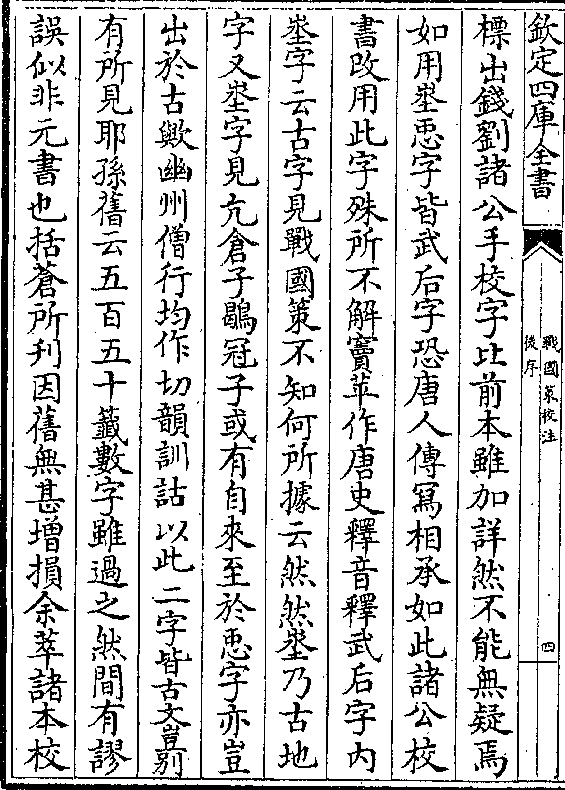 欽定四庫全書
戰國策校注
後序
四
標出錢劉諸公手校字比前本雖加詳然不能無疑焉
如用埊恧字皆武后字恐唐人傳寫相承如此諸公校
書改用此字殊所不解竇苹作唐史釋音釋武后字内
埊字云古字見戰國策不知何所據云然然埊乃古地
字又埊字見亢倉子鶡冠子或有自來至於恧字亦豈
出於古歟幽州僧行均作切韻訓詁以此二字皆古文豈别
有所見耶孫舊云五百五十籤數字雖過之然間有謬
誤似非元書也括蒼所刋因舊無甚増損余萃諸本校